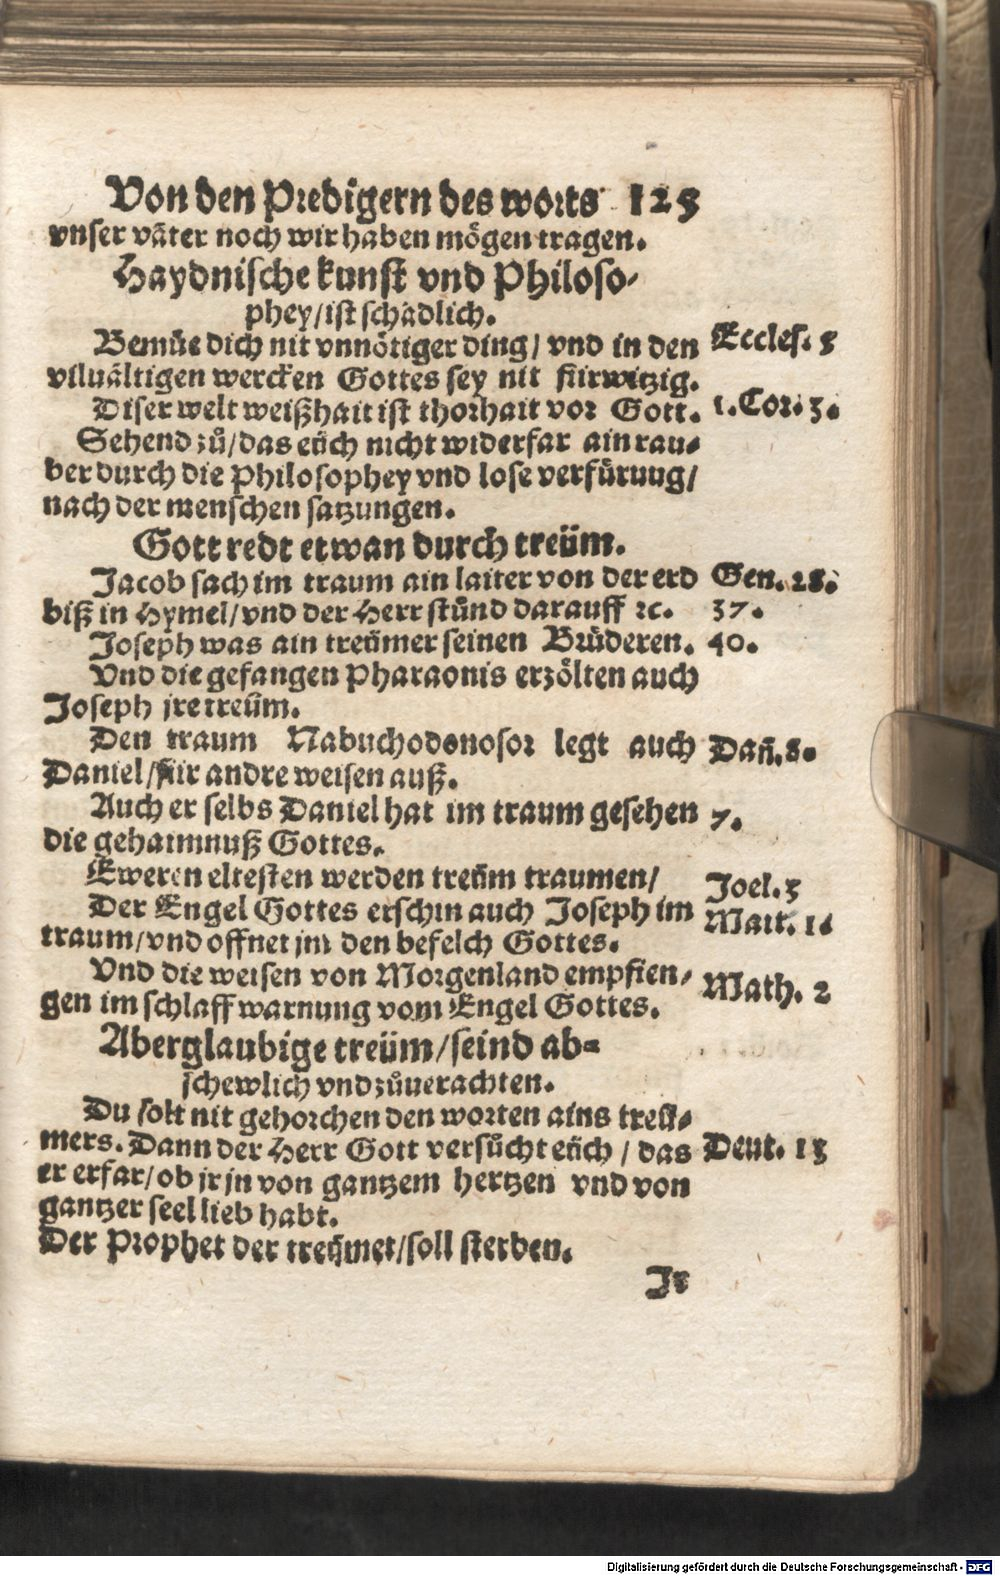 Von den Predigern des worts 125
vnser väter noch wir haben mögen tragen.
Haydnische kunst vnd Philoso-
phey/ist schädlich.
Bemüe dich nit vnnötiger ding/ vnd in den Eccles. 3
viluältigen wercken Gottes sey nit fürwitzig.
Diser welt weißhait ist thorhait vor Gott. 1.Cor. 3.
Sehend zů/das eüch nicht widerfar ain rau-
ber durch die Philosophey vnd lose verfürung/
nach der menschen satzungen.
Gott redt etwan durch treüm.
Jacob sach im traum ain laiter von der erd Gen. 28.
biß in Hymel/vnd der Herr stůnd darauff ꝛc. 37.
Joseph was ain treümer seinen Brüderen. 40.
Vnd die gefangen Pharaonis erzölten auch
Joseph jre treüm.
Den traum Nabuchodonosor legt auch Dañ. 8.
Daniel/für andre weisen auß.
Auch er selbs Daniel hat im traum gesehen 7.
die gehaimnuß Gottes.
Eweren eltesten werden treüm traumen/ Joel. 3
Der Engel Gottes erschin auch Joseph im Matt. 1.
traum/vnd offnet jm den befelch Gottes.
Vnd die weisen von Morgenland empfien- Math. 2
gen im schlaff warnung vom Engel Gottes.
Aberglaubige treüm/seind ab-
schewlich vnd zůuerachten.
Du solt nit gehorchen den worten ains treü-
mers. Dann der Herr Gott versůcht eüch / das Deut. 13
er erfar/ob jr jn von gantzem hertzen vnd von
gantzer seel lieb habt.
Der Prophet der treümet/soll sterben.
Jr
Digitalisierung gefördert durch die Deutsche Forschungsgemeinschaft - DFG